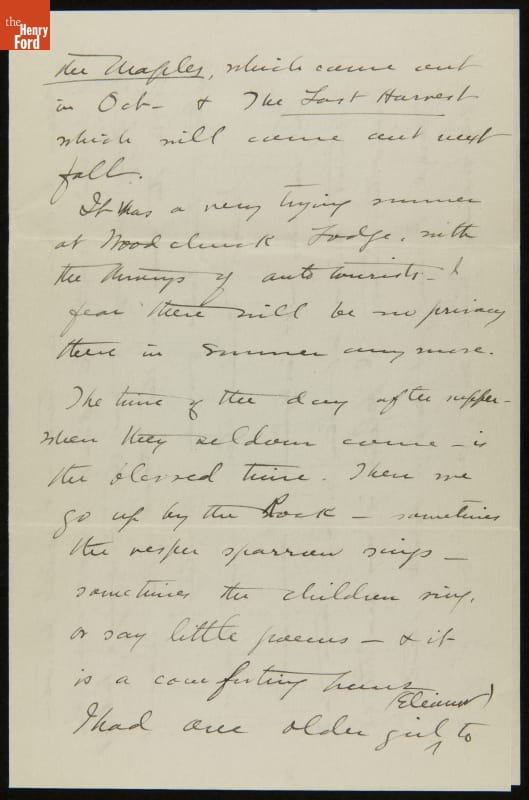 the Henry Ford
the Maples, which came out
in Oct- & The Last Harvest
which will come out next
fall.
It was a very trying summer
at Woodchuck Lodge, with
the throngs of auto tourists - I
fear there will be no privacy
there in summer any more.
The time of the day after supper-
when they seldom come - is
the blessed time. Then we
go up by the Rock - sometimes
the vesper sparrow sings -
sometimes the children sing,
or say little poems - & it
is a comforting hour
(Eleanor)
I had one older girl ^ to